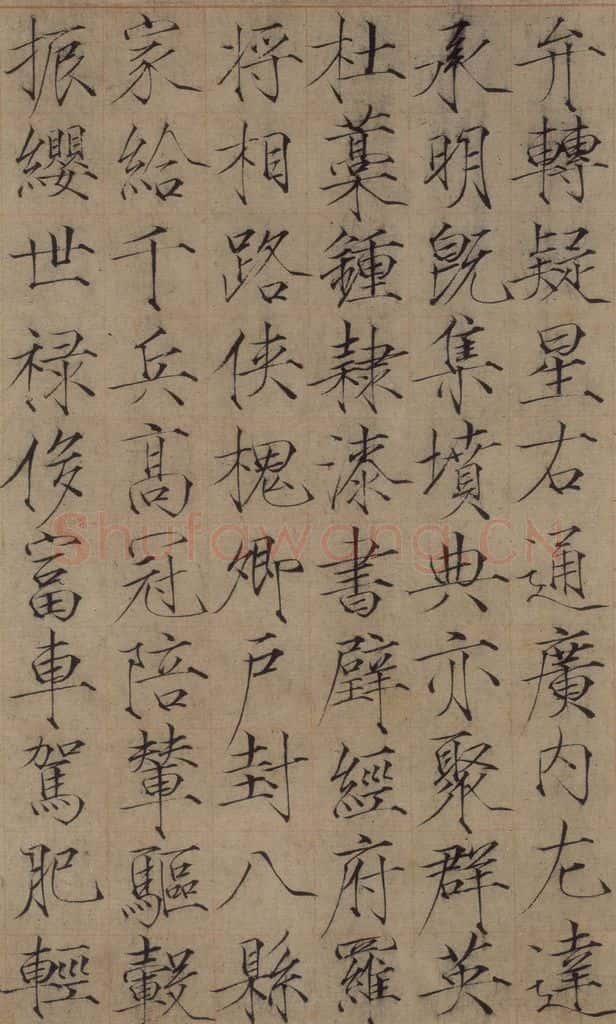 弁轉疑星右通廣內左達
承明既集墳典亦聚群英
杜藁鍾隸漆書壁經府羅
將相路俠槐卿戶封八縣
家給千兵高冠陪輦驅轂
振纓世祿侈富車駕肥輕
Shufawang.CN